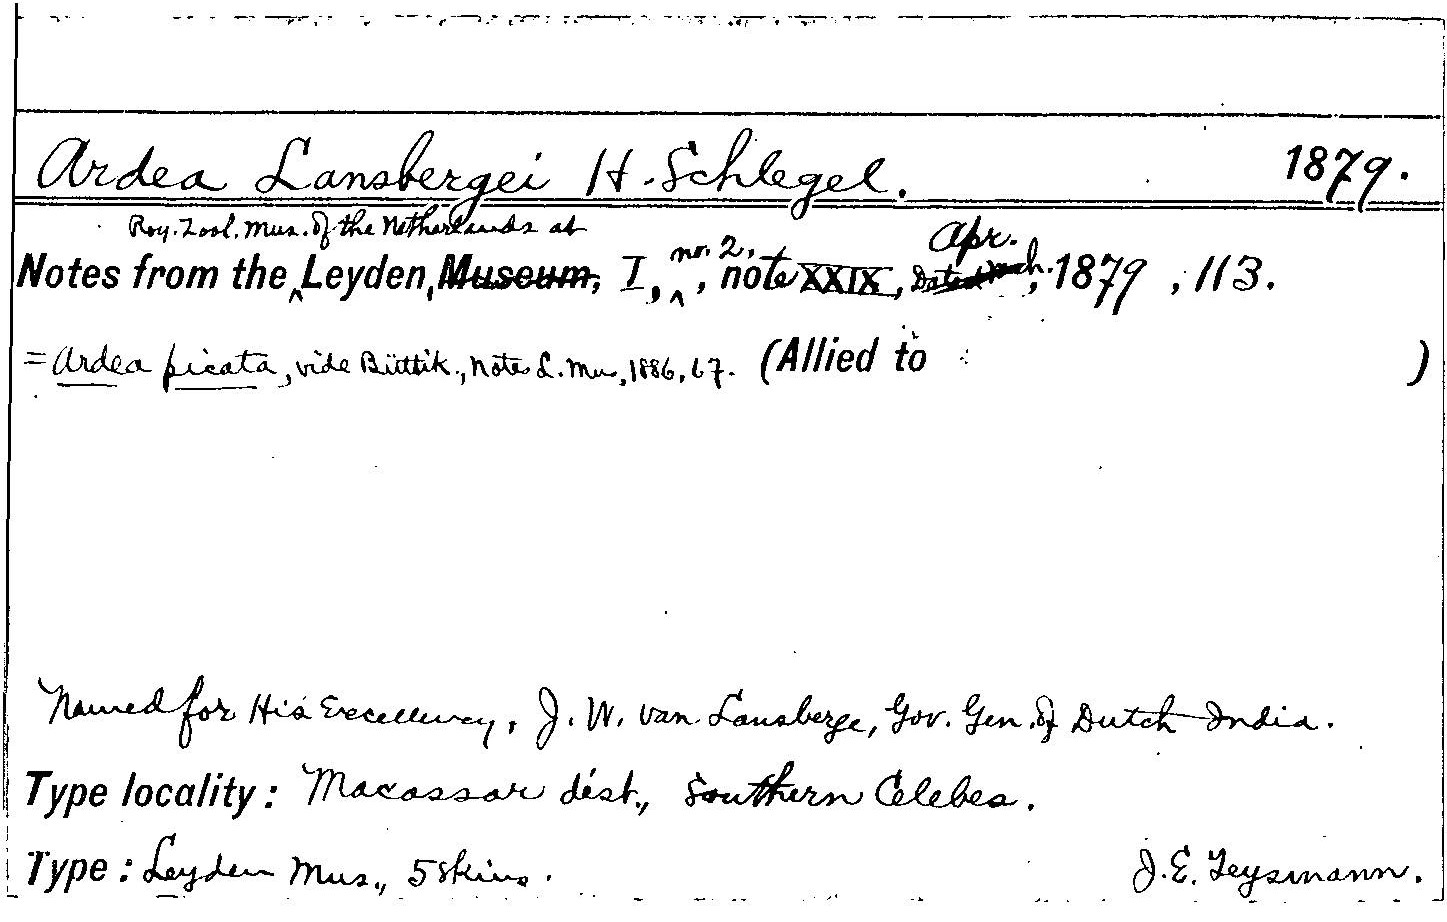 Ardea Lansbergei H. Schlegel. 1879.
Roy. Zool. Mus. of the Netherlands at
Notes from the ^ Leyden, Museum, I, ^ no. 2, , note XXIX, Dated Mch. Apr. , 1879 , 113.
= Ardea picata, vide Büttik., Notes L. Mu, 1886, 67. (Allied to )
Named for His Excellency, J. W. van Lansberge, Gov. Gen. of Dutch India.
Type locality: Macassar dist., Southern Celebes.
Type: Leyden Mus., 5 skins. J. E. Teysmann.